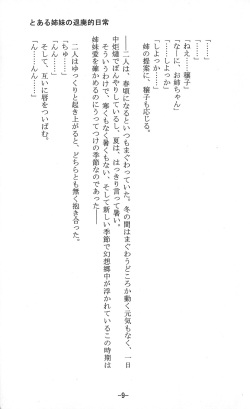 とある姉妹の退廃的日常
「……」
「……」
「ねえ……穣子」
「なーに、お姉ちゃん」
「しよっか」
「しよっか」
姉の提案に、穣子も応じる。
――二人は、春頃になるといつもまぐわっていた。冬の間はまぐわうどころか動く元気もなく、一日
中炬燵でぼんやりしているし、夏は、はっきり言って暑い。
そういうわけで、寒くもなく暑くもない、そして新しい季節で幻想郷中が浮かれているこの時期は
姉妹愛を確かめるのにうってつけの季節なのであった――
二人はゆっくりと起き上がると、どちらとも無く抱き合った。
「ちゅ……」
「んん……」
そして、互いに唇をついばむ。
「ん……んん……」
-9-